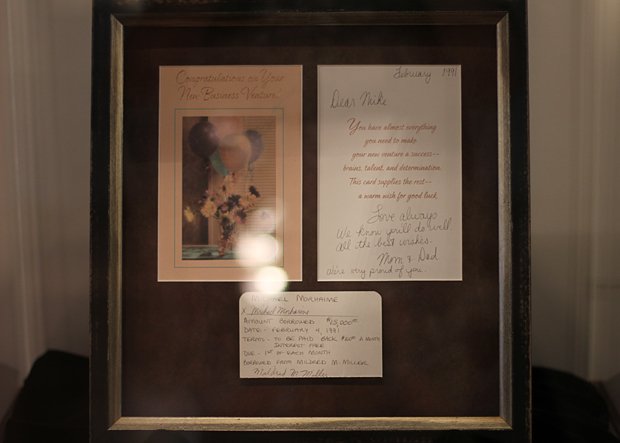 Congratulations on Your
New Business Venture!
February 1991
Dear Mike
You have almost everything
you need to make
your new venture a success--
brains, talent, and determination.
This card supplies the rest--
a warm wish for good luck.
Love always
We know you'll do well.
All the best wishes.
Mom & Dad
we're very proud of you.
MICHAEL MORHAIME
X Michael Morhaime
AMOUNT BORROWED $15,000.00
DATE - FEBRUARY 4, 1991
TERMS - TO BE PAID BACK A MONTH
INTEREST FREE
DUE - 1ST OF EACH MONTH
BORROWED FROM MILDRED M. MILLER
Mildred M. Miller